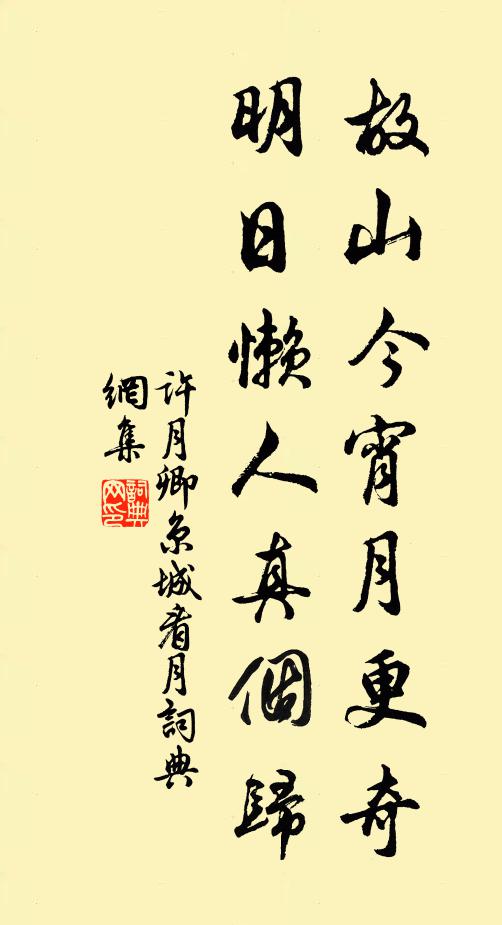 故山今宵月更奇
明日懒人真個歸
许月卿京城看月詞典
網集
詞典
网印